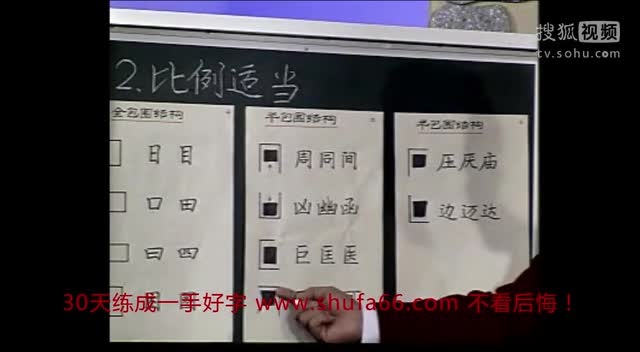 搜狐视频
tv.sohu.com
2.比例适当
全包围结构
日 目
口 田
曰 四
半包围结构
周 同 间
凶 幽 函
巨 匡 医
半包围结构
压 厌 庙
边 迈 达
30天练成一手好字 www.shufa66.com 不看后悔！